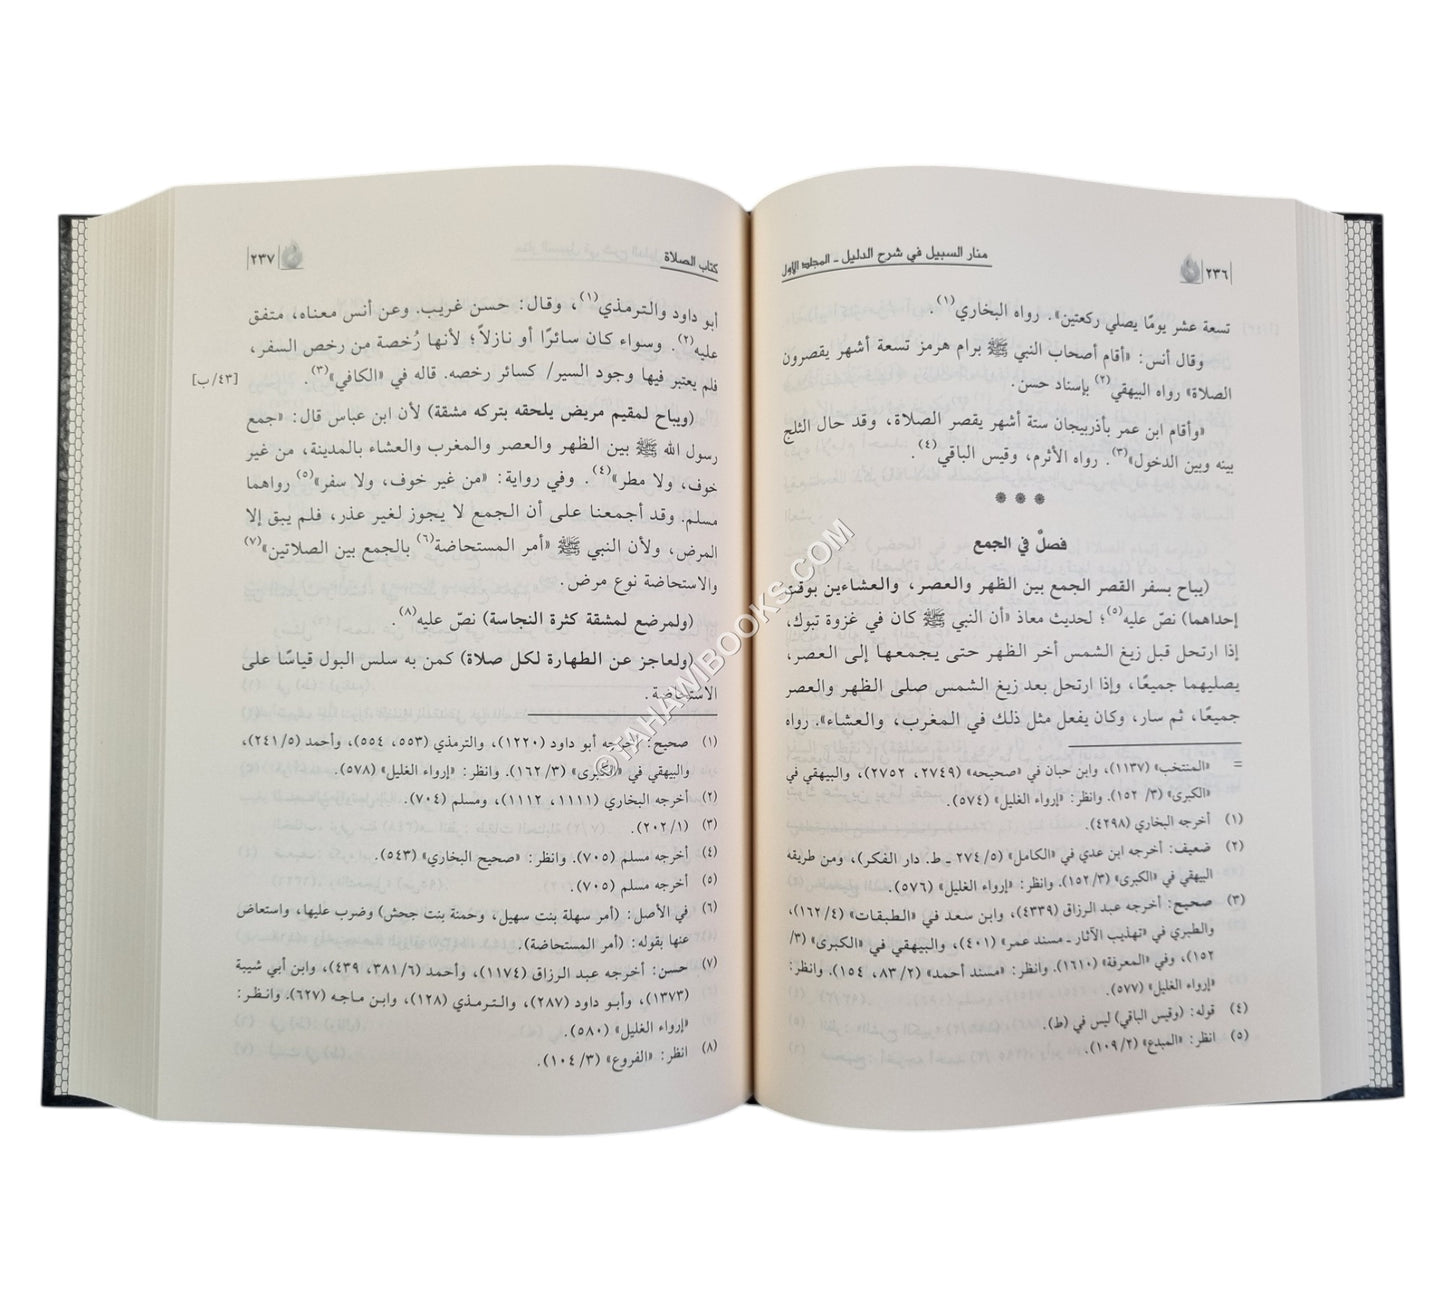 ٢٣٦
منار السبيل في شرح الدليل - المجلد الأول
تسعة عشر يومًا يصلي ركعتين». رواه البخاري(١).
وقال أنس: «أقام أصحاب النبي ﷺ برام هرمز تسعة أشهر يقصرون
الصلاة» رواه البيهقي(٢) بإسناد حسن.
«وأقام ابن عمر بأذربيجان ستة أشهر يقصر الصلاة، وقد حال الثلج
بينه وبين الدخول»(٣). رواه الأثرم، وقيس الباقي(٤).
* * *
فصلٌ في الجمع
(يباح بسفر القصر الجمع بين الظهر والعصر، والعشاءين بوقت
إحداهما) نصّ عليه(٥)؛ لحديث معاذ «أن النبي ﷺ كان في غزوة تبوك،
إذا ارتحل قبل زيغ الشمس أخر الظهر حتى يجمعها إلى العصر،
يصليهما جميعًا، وإذا ارتحل بعد زيغ الشمس صلى الظهر والعصر
جميعًا، ثم سار، وكان يفعل مثل ذلك في المغرب، والعشاء». رواه
= «المنتخب» (١١٣٧)، وابن حبان في «صحيحه» (٢٧٤٩، ٢٧٥٢)، والبيهقي في
«الكبرى» (٣/ ١٥٢). وانظر: «إرواء الغليل» (٥٧٤).
(١) أخرجه البخاري (٤٢٩٨).
(٢) ضعيف: أخرجه ابن عدي في «الكامل» (٥/ ٢٧٤ - ط. دار الفكر)، ومن طريقه
البيهقي في «الكبرى» (٣/ ١٥٢). وانظر: «إرواء الغليل» (٥٧٦).
(٣) صحيح: أخرجه عبد الرزاق (٤٣٣٩)، وابن سعد في «الطبقات» (٤/ ١٦٢)،
والطبري في «تهذيب الآثار - مسند عمر» (٤٠١)، والبيهقي في «الكبرى» (٣/
١٥٢)، وفي «المعرفة» (١٦١٠). وانظر: «مسند أحمد» (٢/ ٨٣، ١٥٤). وانظر:
«إرواء الغليل» (٥٧٧).
(٤) قوله: (وقيس الباقي) ليس في (ط).
(٥) انظر: «المبدع» (٢/ ١٠٩).
كتاب الصلاة
٢٣٧
أبو داود والترمذي(١)، وقال: حسن غريب. وعن أنس معناه، متفق
عليه(٢). وسواء كان سائرًا أو نازلاً؛ لأنها رُخصة من رخص السفر،
فلم يعتبر فيها وجود السير/ كسائر رخصه. قاله في «الكافي»(٣). [٤٣/ب]
(ويباح لمقيم مريض يلحقه بتركه مشقة) لأن ابن عباس قال: «جمع
رسول الله ﷺ بين الظهر والعصر والمغرب والعشاء بالمدينة، من غير
خوف، ولا مطر»(٤). وفي رواية: «من غير خوف، ولا سفر»(٥) رواهما
مسلم. وقد أجمعنا على أن الجمع لا يجوز لغير عذر، فلم يبق إلا
المرض، ولأن النبي ﷺ «أمر المستحاضة(٦) بالجمع بين الصلاتين»(٧)
والاستحاضة نوع مرض.
(ولمرضع لمشقة كثرة النجاسة) نصّ عليه(٨).
(ولعاجز عن الطهارة لكل صلاة) كمن به سلس البول قياسًا على
الاستحاضة.
(١) صحيح: أخرجه أبو داود (١٢٢٠)، والترمذي (٥٥٣، ٥٥٤)، وأحمد (٥/ ٢٤١)،
والبيهقي في «الكبرى» (٣/ ١٦٢). وانظر: «إرواء الغليل» (٥٧٨).
(٢) أخرجه البخاري (١١١١، ١١١٢)، ومسلم (٧٠٤).
(٣) (١/ ٢٠٢).
(٤) أخرجه مسلم (٧٠٥). وانظر: «صحيح البخاري» (٥٤٣).
(٥) أخرجه مسلم (٧٠٥).
(٦) في الأصل: (أمر سهلة بنت سهيل، وحمنة بنت جحش) وضرب عليها، واستعاض
عنها بقوله: (أمر المستحاضة).
(٧) حسن: أخرجه عبد الرزاق (١١٧٤)، وأحمد (٦/ ٣٨١، ٤٣٩)، وابن أبي شيبة
(١٣٧٣)، وأبو داود (٢٨٧)، والترمذي (١٢٨)، وابن ماجه (٦٢٧). وانظر:
«إرواء الغليل» (٥٨٠).
(٨) انظر: «الفروع» (٣/ ١٠٤).
©TAHAMIBOOKS.COM